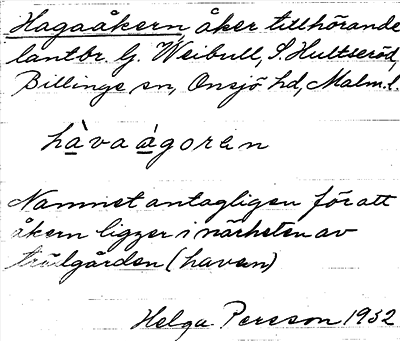 Hagaåkern, åker tillhörande
lantbr. G. Weibull, S. Hultseröd,
Billinge sn, Onsjö hd, Malm. l.
hàvaágoren
Namnet antagligen för att
åkern ligger i närheten av
trädgården (haven)
Helga Persson 1932